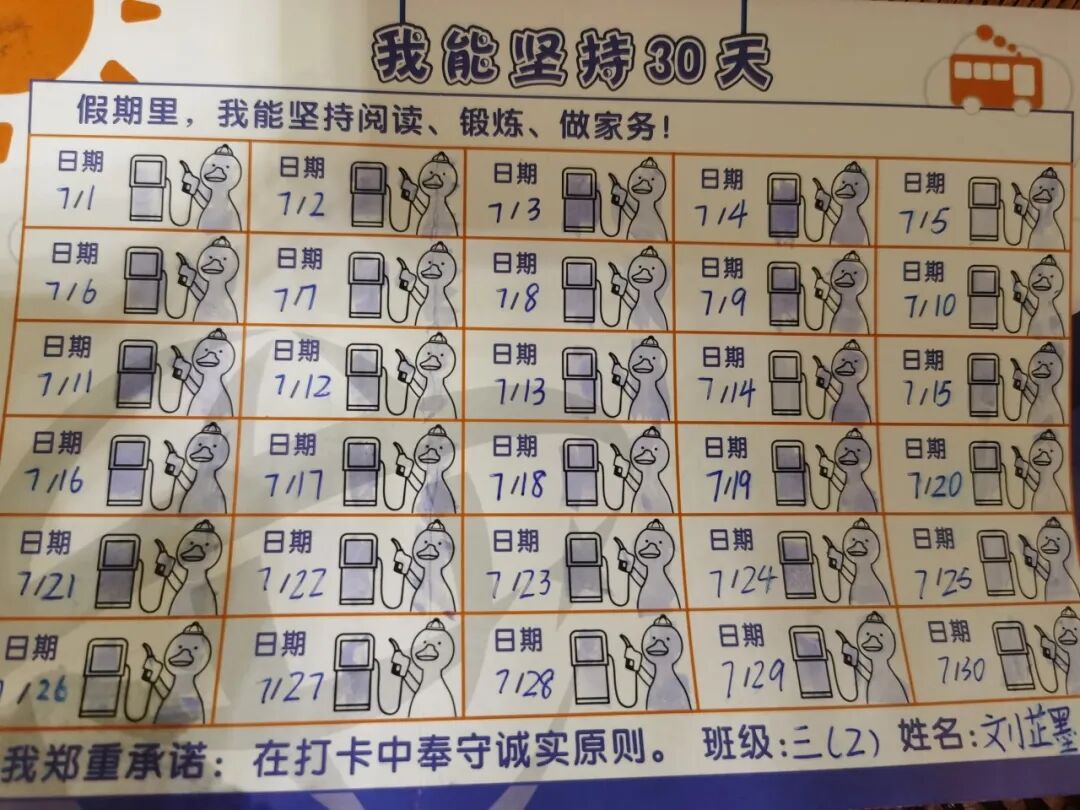 我能坚持30天
假期里，我能坚持阅读、锻炼、做家务！
日期 日期 日期 日期 日期
7/1 7/2 7/3 7/4 7/5
日期 日期 日期 日期 日期
7/6 7/7 7/8 7/9 7/10
日期 日期 日期 日期 日期
7/11 7/12 7/13 7/14 7/15
日期 日期 日期 日期 日期
7/16 7/17 7/18 7/19 7/20
日期 日期 日期 日期 日期
7/21 7/22 7/23 7/24 7/25
日期 日期 日期 日期 日期
7/26 7/27 7/28 7/29 7/30
我郑重承诺：在打卡中奉守诚实原则。 班级:三(2) 姓名:刘芷墨